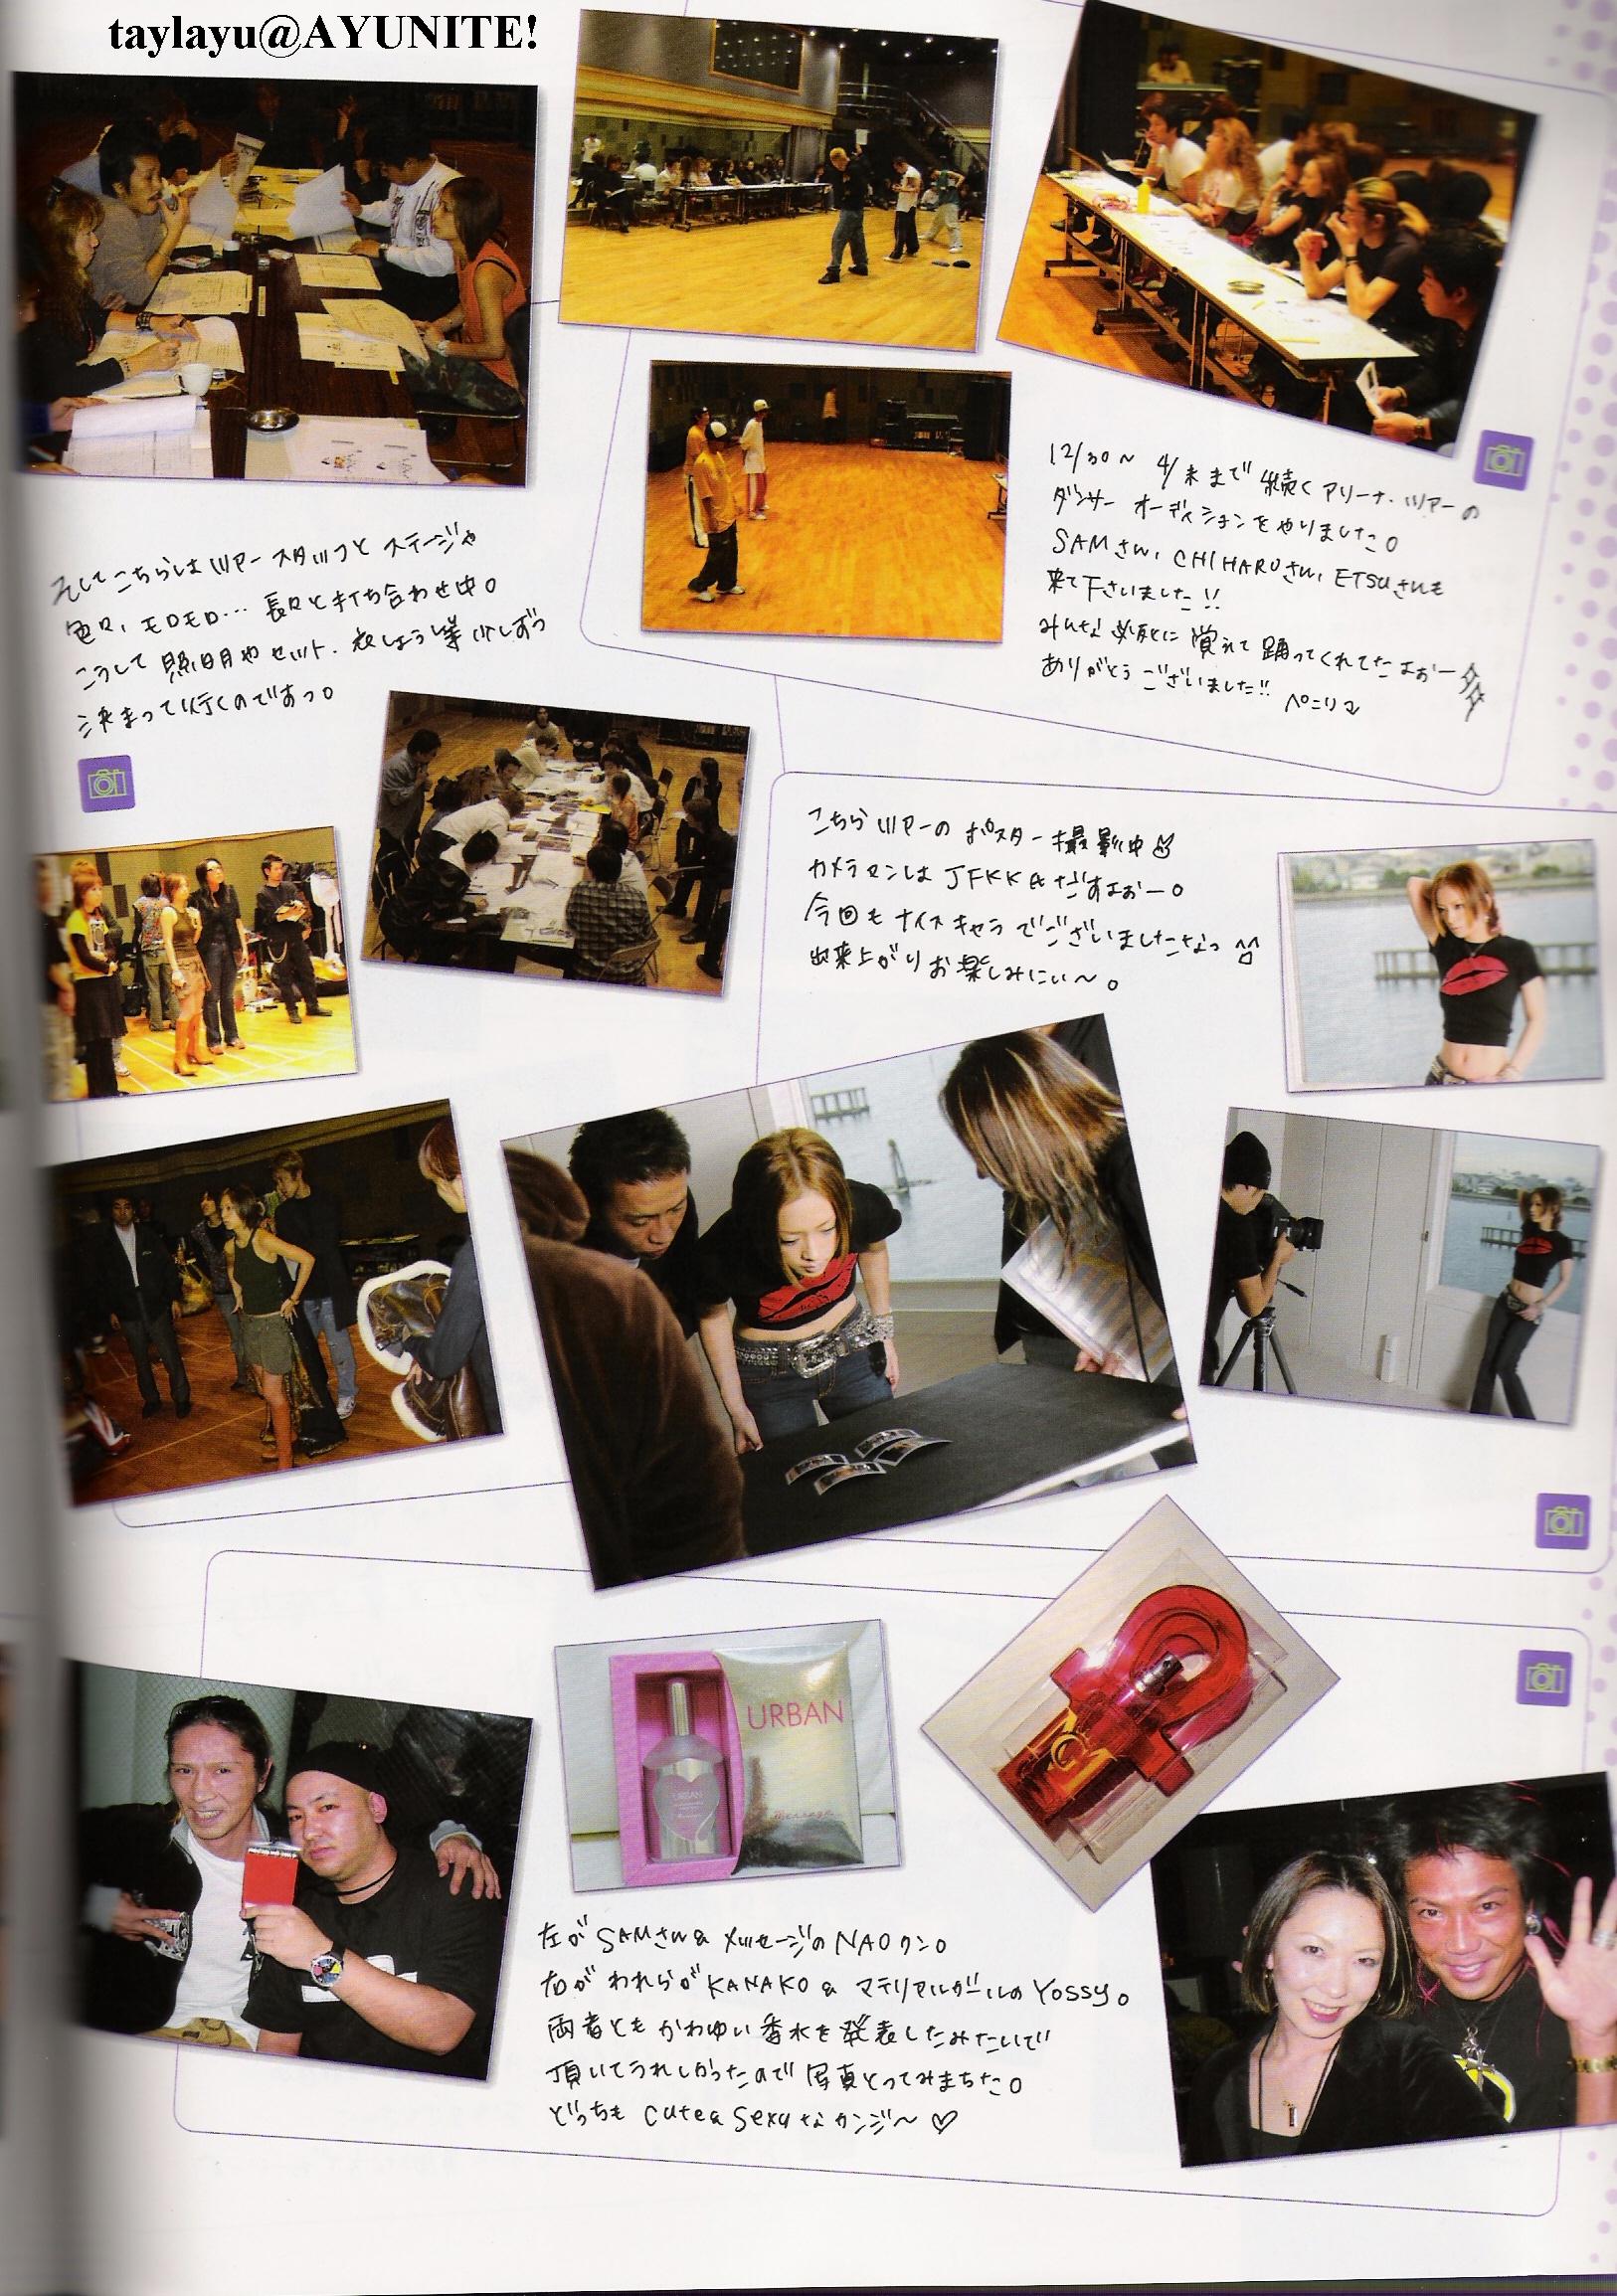 taylayu@AYUNITE!
12/30〜 4/末まで続くアリーナ・ツアーの
ダンサー オーディションをやりました。
SAMさん、CHIHARUさん、ETSUさんも
来て下さいました!!
みんな必死に覚えて踊ってくれてたよぉー
ありがとうございました!! ペコリ
そしてこちらはツアースタッフとステージや
色々、モロモロ… 長々と打ち合わせ中。
こうして照明やセット、衣しょう等少しずつ
決まって行くのですっ。
こちらツアーのポスター撮影中
カメラマンはJFKKAだすよぉー。
今回もナイスキャラでございましたなっ ^^
出来上がりお楽しみにぃ〜。
URBAN
URBAN
message
左がSAMさん& メッセージのNAOクン。
右がわれらがKANAKO& マテリアルガールのYOSSY。
両者ともかわゆい香水を発表したみたいで
頂いてうれしかったので写真とってみまちた。
どっちも cute&sexyなカンジ〜♡